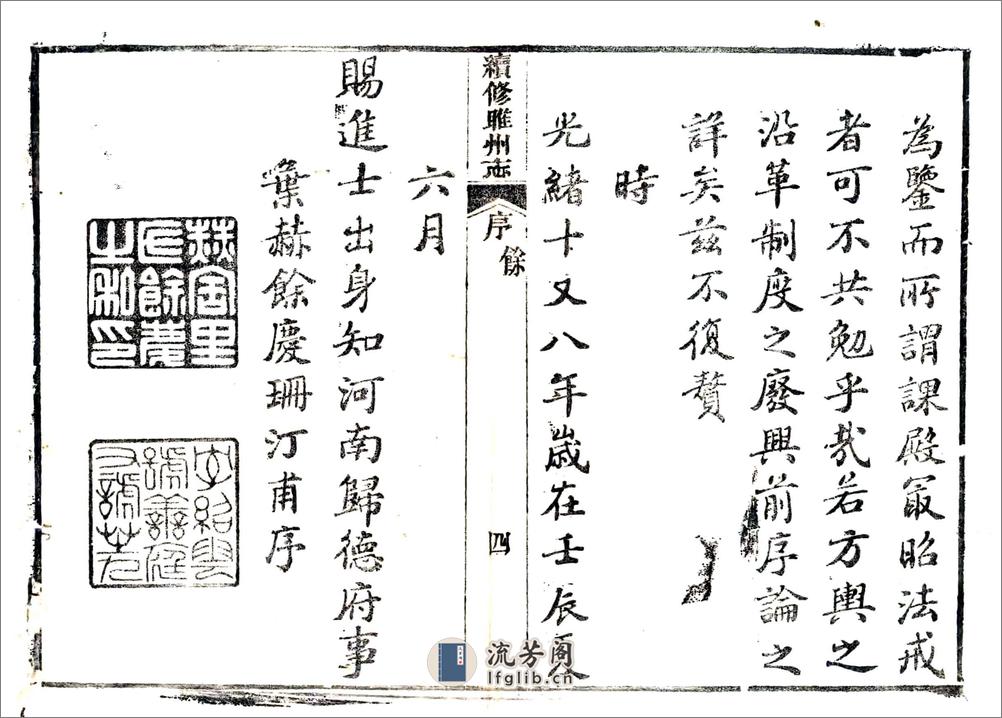 為鑒而所謂課殿冣昭法戒
者可不共勉乎哉若方輿之
沿革制度之廢興前序論之
詳矣茲不復贅
時
光緒十又八年歲在壬辰夏
續修睢州志
序
餘
四
六月
賜進士出身知河南歸德府事
葉赫餘慶珊汀甫序
赫舍里
氏餘慶
之私印
流芳阁
lfglib.cn